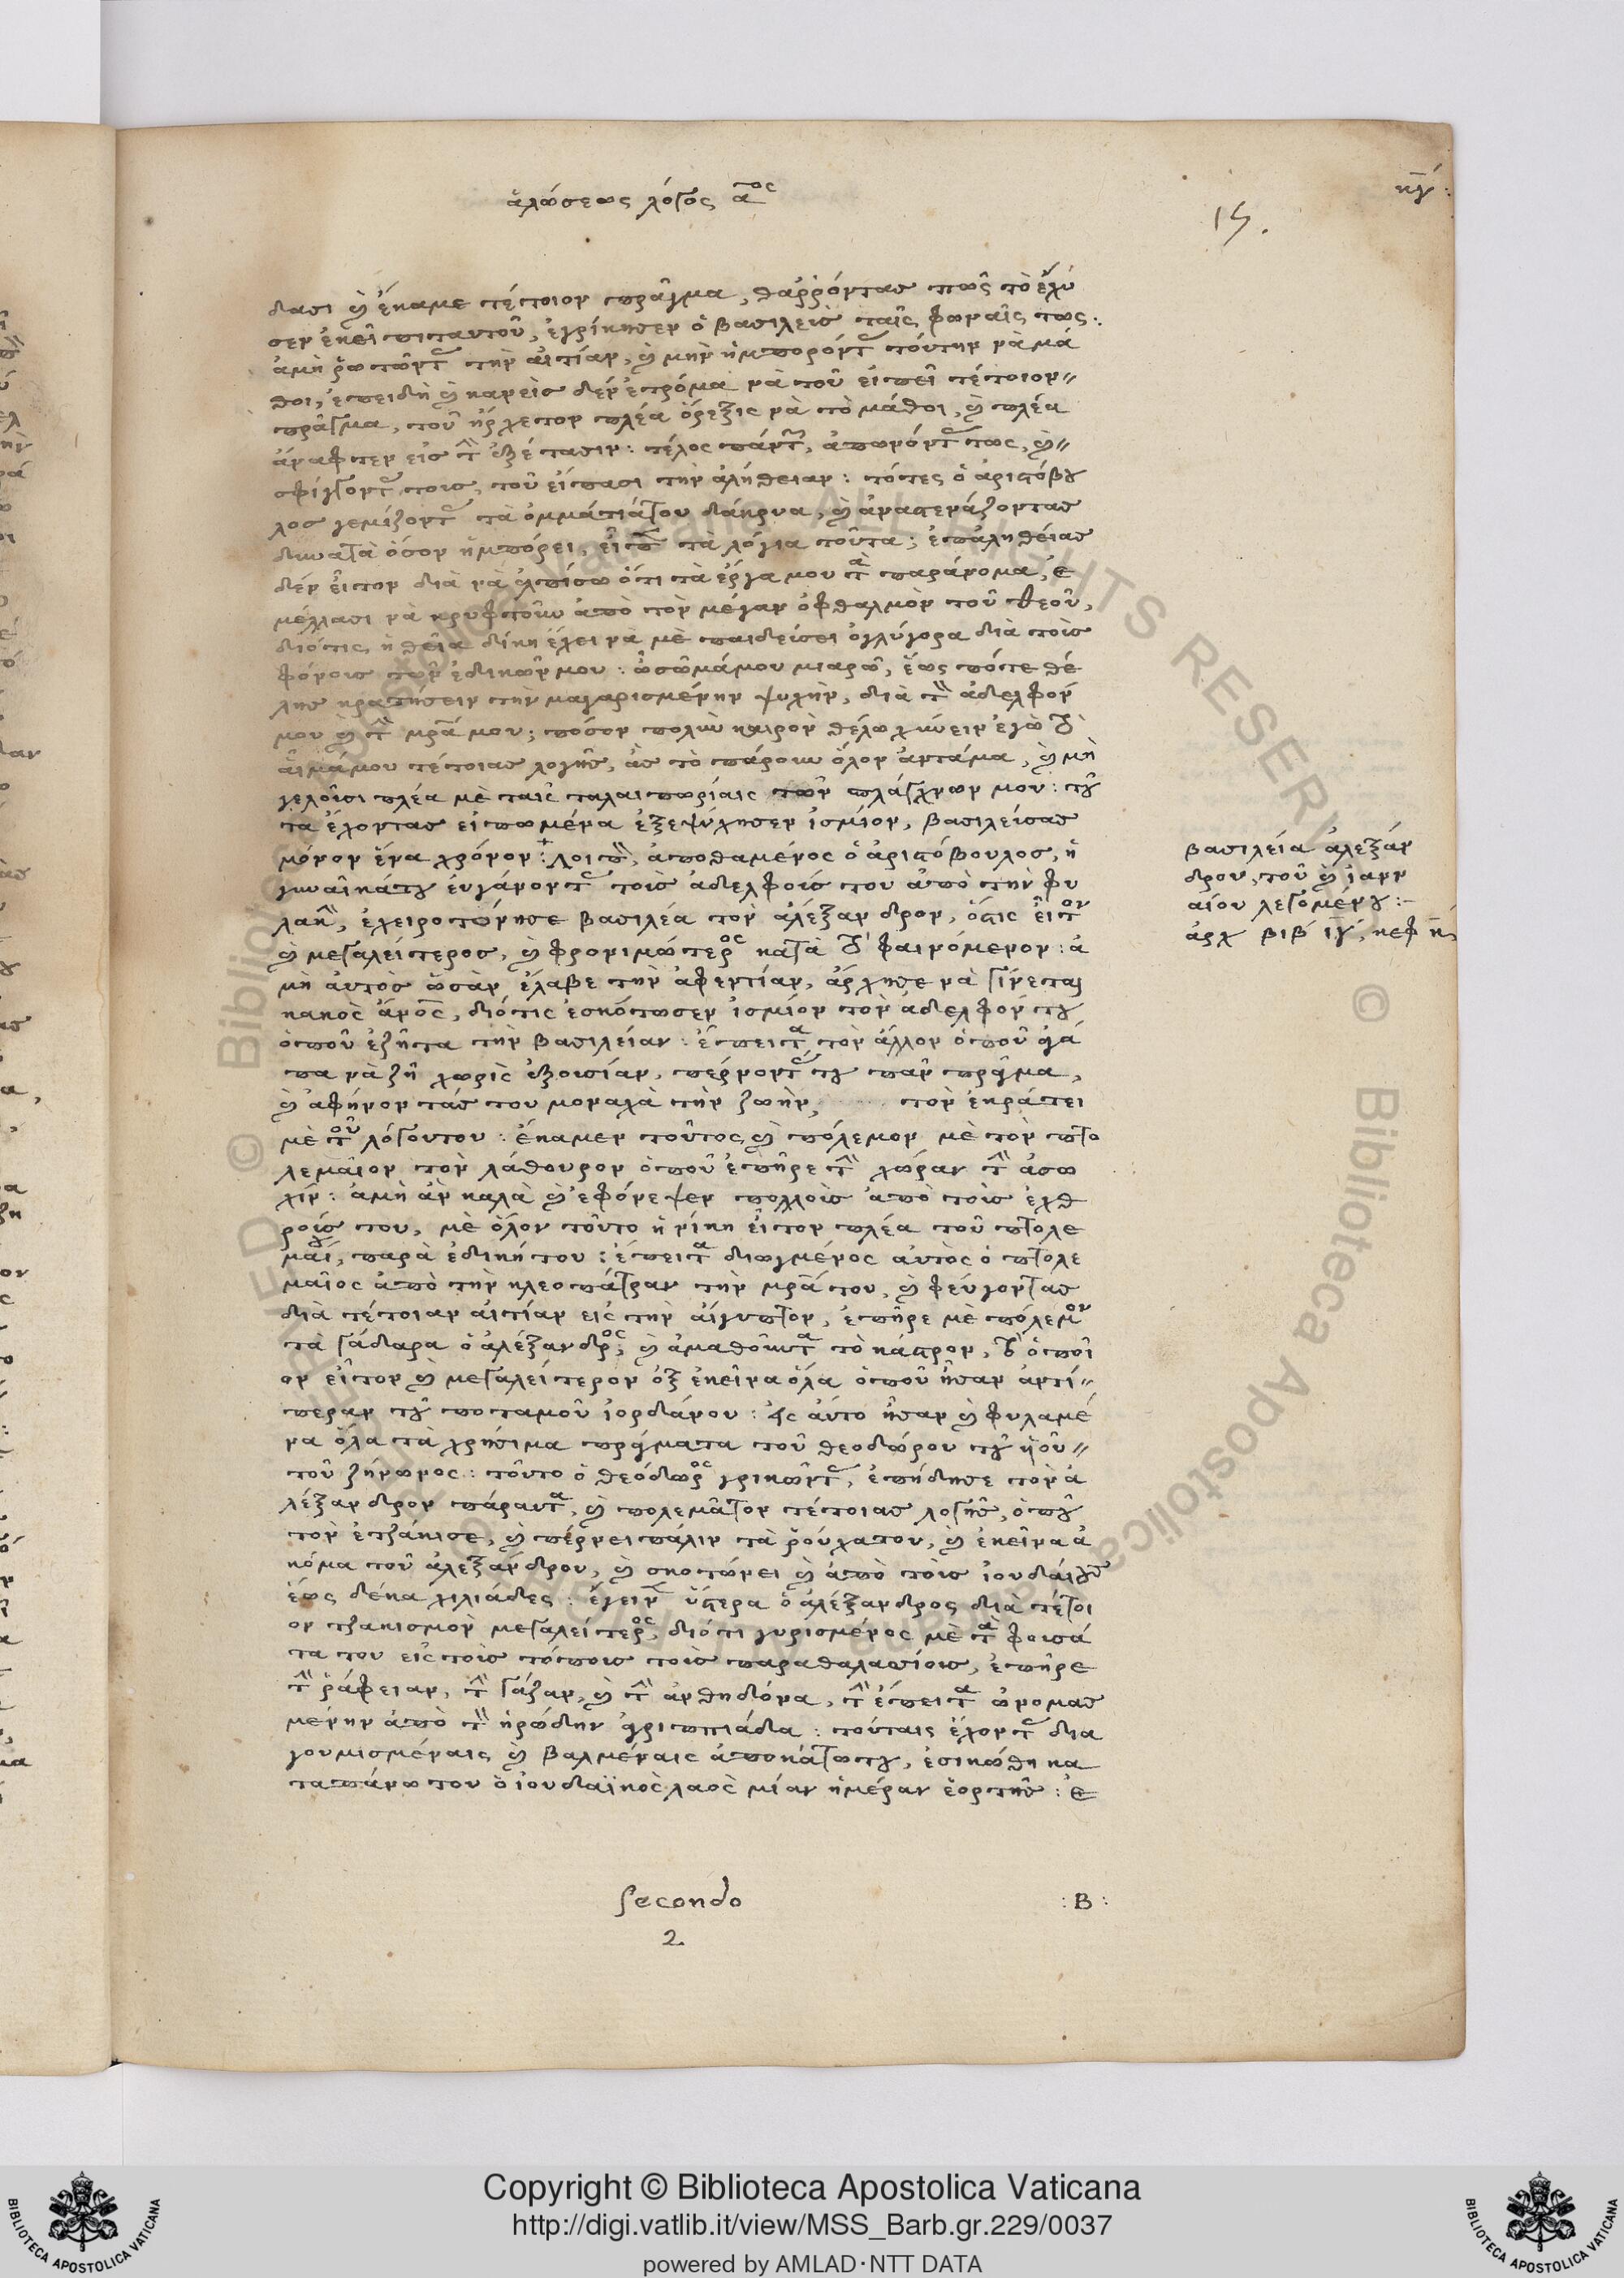 ἁλώσεως λόγος α^ος
κγ:
15.
δασι καὶ ἔκαμε τέτοιον πρᾶγμα, θαῤῥόντας πῶς τὸ ἔχυ
σεν ἐκεῖ ἐγρίκησεν ὁ βασιλεὺς ταῖς φωναῖς τως:
ἀμὴ ῥωτῶντας τὴν αἰτίαν, καὶ μὴν ἠμπορόντας τούτην νὰ μά
θοι, ἐπειδὴ καὶ κανεὶς δὲν ἐτρόμα νὰ τοῦ εἰπεῖ τέτοιον
πρᾶγμα, τοῦ ἤρχετον πλέα ὄρεξις νὰ τὸ μάθοι, καὶ πλέα
ἄναφτεν εἰς τὴν ἐξέτασιν: τέλος πάντων, καὶ
σφίγγοντας τοὺς, τοῦ εἴπασι τὴν ἀλήθειαν: τότες ὁ ἀριστόβου
λος γεμίζοντας τὰ ὀμμάτιάτου δάκρυα, καὶ ἀναστενάζοντας
δυνατὰ ὅσον ἠμπόρει, εἶπεν τὰ λόγια τοῦτα; ἐπἀληθείας
δὲν εἶτον διὰ νὰ ἐλπίσω ὅτι τὰ ἔργα μου τὰ παράνομα,
μέλλασι νὰ κρυφτοῦν ἀπὸ τὸν μέγαν ὀφθαλμὸν τοῦ θεοῦ,
διότις ἡ θεῖα δίκη ἔχει νὰ μὲ παιδεύσει ὀγλύγορα διὰ τοὺς
φόνους τῶν ἐδικῶν μου: ὦ σῶμάμου μιαρὸ, ἕως πότε θέ
λης κρατήσειν τὴν μαγαρισμένην ψυχὴν, διὰ τὸν ἀδελφόν
μου καὶ τὴν μητέρα μου; πόσον πολὺν καιρὸν θέλω χύνειν ἐγὼ τὸ
αἷμάμου τέτοιας λογῆς, ἂς τὸ πάρουν ὅλον ἀντάμα, καὶ μὴ
γελοῦσι πλέα μὲ ταῖς ταλαιπωρίαις τῶν σπλάγχνων μου: τοῦ
τα ἔχοντας εἰπωμένα ἐξεψύχησεν ἰσμίον, βασιλεύσας
μόνον ἕνα χρόνον: Λοιπὸν, ἀποθαμένος ὁ ἀριστόβουλος, ἡ
γυναῖκάτου ἐυγάνοντας τοὺς ἀδελφούς του ἀπὸ τὴν φυ
λακὴν, ἐχειροτώνησε βασιλέα τὸν ἀλέξανδρον, ὅστις εἶτον
καὶ μεγαλείτερος, καὶ φρονιμώτερος κατὰ τὸ φαινόμενον: ἀ
μὴ αὐτὸς ὡσὰν ἔλαβε τὴν ἀφεντίαν, ἄρχησε νὰ γίνεται
κακὸς ἄνος, διότις ἐσκότωσεν ἰσμίον τὸν ἀδελφόν του
ὁποῦ ἐζῆτα τὴν βασιλείαν: ἔπειτα τὸν ἄλλον ὁποῦ ἀγά
πα νὰ ζῆ χωρὶς ἐξουσίαν, πέρνοντάς του πᾶν πρᾶγμα,
καὶ ἀφήνοντάς του μοναχὰ τὴν ζωὴν, τὸν ἐκράτει
μὲ τοῦ λόγουτου: ἔκαμεν τοῦτος καὶ πόλεμον μὲ τὸν πτο
λεμαῖον τὸν λάθουρον ὁποῦ ἐπῆρε τὴν χώραν τὴν ἀσω
χίν: ἀμὴ ἂν καλὰ καὶ ἐφόνεψεν πολλοὺς ἀπὸ τοὺς ἐχθ
ρούς του, μὲ ὅλον τοῦτο ἡ νίκη εἶτον πλέα τοῦ πτολε
μαίου, παρὰ ἐδική του: ἔπειτα διωγμένος αὐτὸς ὁ πτολε
μαῖος ἀπὸ τὴν κλεοπάτραν τὴν μητέρα του, καὶ φεύγοντας
διὰ τέτοιαν αἰτίαν εἰς τὴν αἴγυπτον, ἐπῆρε μὲ πόλεμον
τὰ γάδαρα ὁ ἀλέξανδρος, καὶ ἀμαθοῦντα τὸ κάστρον, τὸ ὁποῖ
ον εἶτον καὶ μεγαλείτερον ὀξ ἐκεῖνα ὅλα ὁποῦ ἦσαν ἀντί
περαν τοῦ ποταμοῦ ἰορδάνου: εἰς αὐτο ἦσαν καὶ φυλαμέ
να ὅλα τὰ χρήσιμα πράγματα τοῦ θεοδώρου τοῦ ἡοῦ
τοῦ ζήνωνος: τοῦτο ὁ θεόδωρος γρικῶντας, ἐπήδησε τὸν ἀ
λέξανδρον πάραυτα, καὶ πολεμᾶτον τέτοιας λογῆς, ὁποῦ
τὸν ἐτζάκισε, καὶ πέρνει πάλιν τὰ ῥοῦχατου, καὶ ἐκεῖνα ἀ
κόμα τοῦ ἀλεξάνδρου, καὶ σκοτώνει καὶ ἀπὸ τοὺς ἰουδαίους
ἕως δέκα χιλιάδες: ἔγεινεν ὕστερα ὁ ἀλέξανδρος διὰ τέτοι
ον τζακισμὸν μεγαλείτερος, διότι γυρισμένος μὲ τὰ φουσά
τα του εἰς τοὺς τόπους τοὺς παραθαλασίους, ἐπῆρε
τὴν ῥάφειαν, τὴν γάζαν, καὶ τὴν ἀνθηδόνα, τὴν ἔπειτα ὠνομας
μένην ἀπὸ τὸν ἡρώδην ἀγριππιάδα: τούταις ἔχοντας δια
γουμισμέναις καὶ βαλμέναις ἀποκάτωτου, ἐσικώθη κα
ταπάνω του ὁ ἰουδαϊκὸς λαὸς μίαν ἡμέραν ἑορτῆς: ἐ
βασιλεία ἀλεξάν
δρου, τοῦ καὶ ἰανν
αίου λεγομένου:-
ἀρχ βιβ ιγ, κεφ κ
secondo
:Β:
2
Copyright © Biblioteca Apostolica Vaticana
http://digi.vatlib.it/view/MSS_Barb.gr.229/0037
powered by AMLAD·NTT DATA